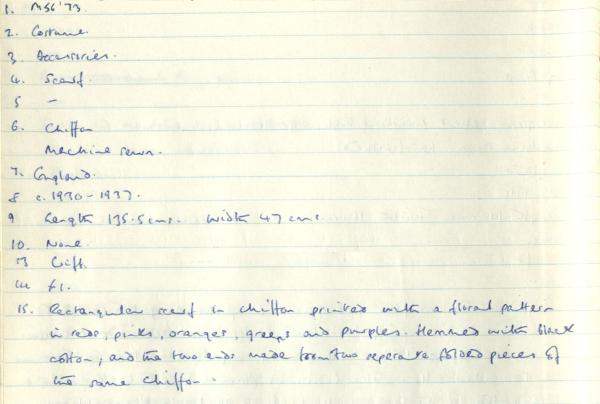 1. M56'73.
2. Costume.
3. Accessories.
4. Scarf.
5 —
6. Chiffon
Machine sewn.
7. England.
8 c. 1930-1937.
9 Length 135.5 cms. Width 47 cms
10. None.
13 Gift.
14 £1.
15. Rectangular scarf in chiffon printed with a floral pattern
in reds, pinks, oranges, greens and purples. Hemmed with black
cotton, and the two ends made from two separate folded pieces of
the same chiffon.